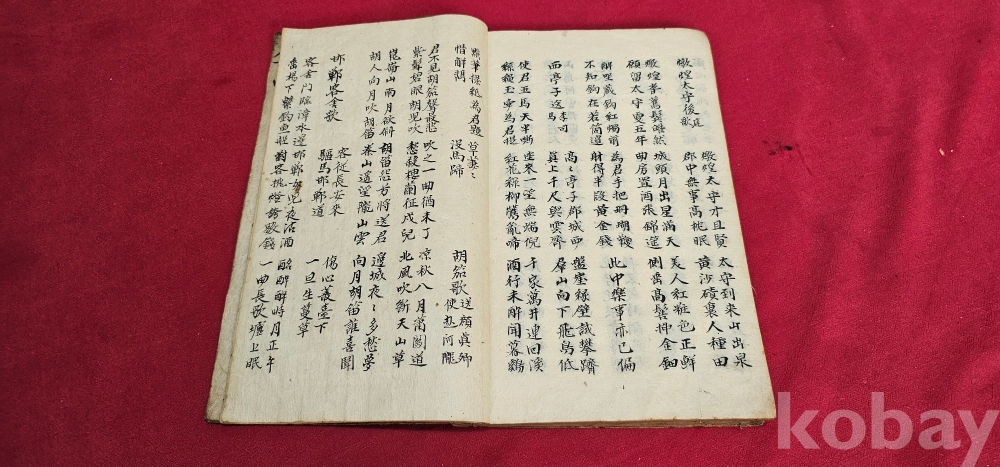 敦煌太守後庭歌
敦煌太守才且賢
郡中無事高枕眠
太守到來山出泉
黃沙磧裏人種田
敦煌耆舊鬢皓然
願留太守更五年
城頭月出星滿天
曲房置酒張錦筵
美人紅粧色正鮮
側垂高髻押金鈿
醉坐藏鉤紅燭前
不知鉤在若箇邊
為君手把珊瑚鞭
射得半段黃金錢
此中樂事亦已偏
西亭子送李司馬
高〻亭子郡城西
直上千尺與雲齊
盤崖緣壁試攀躋
羣山向下飛鳥低
使君五馬天半嘶
絲繩玉壺為君提
坐來一望無端倪
紅花綠柳鶯亂啼
千家萬井連回溪
酒行未醉聞暮鷄
點筆操紙為君題
惜解攜
草萋〻
沒馬蹄
胡笳歌送顔眞卿使赴河隴
君不見胡笳聲最悲
紫髯碧眼胡兒吹
吹之一曲猶未了
愁殺樓蘭征戍兒
凉秋八月蕭關道
北風吹斷天山草
崑崙山南月欲斜
胡人向月吹胡笳
胡笳怨兮將送君
秦山遥望隴山雲
邊城夜〻多愁夢
向月胡笳誰喜聞
邯鄲客舍歌
客從長安來
驅馬邯鄲道
傷心叢臺下
一旦生蔓草
客舍門臨漳水邊
垂楊下繫釣魚船
邯鄲女兒夜沽酒
對客挑燈誇數錢
酩酊醉時月正午
一曲長歌壚上眠
kobay